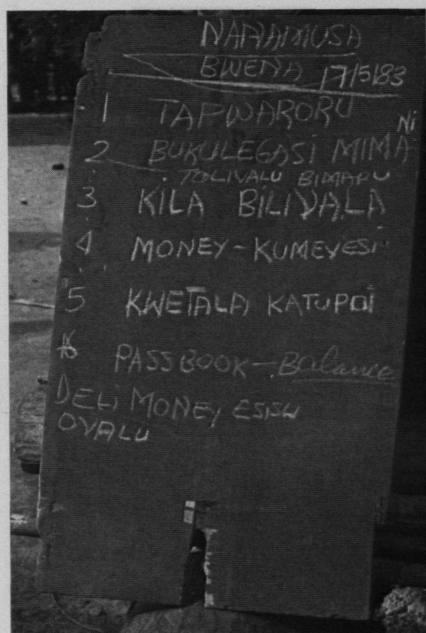 NANAMUSA
BWENA 17/5/83
1 TAPWARORU
2 BUKULEGASI MIMA Ni
TOLIVALU BIMAPU
3 KILA BILIVALA
4 MONEY - KUMEYESI
5 KWETALA KATUPOI
6 PASSBOOK - Balance
DELI MONEY ESISU
OVALU